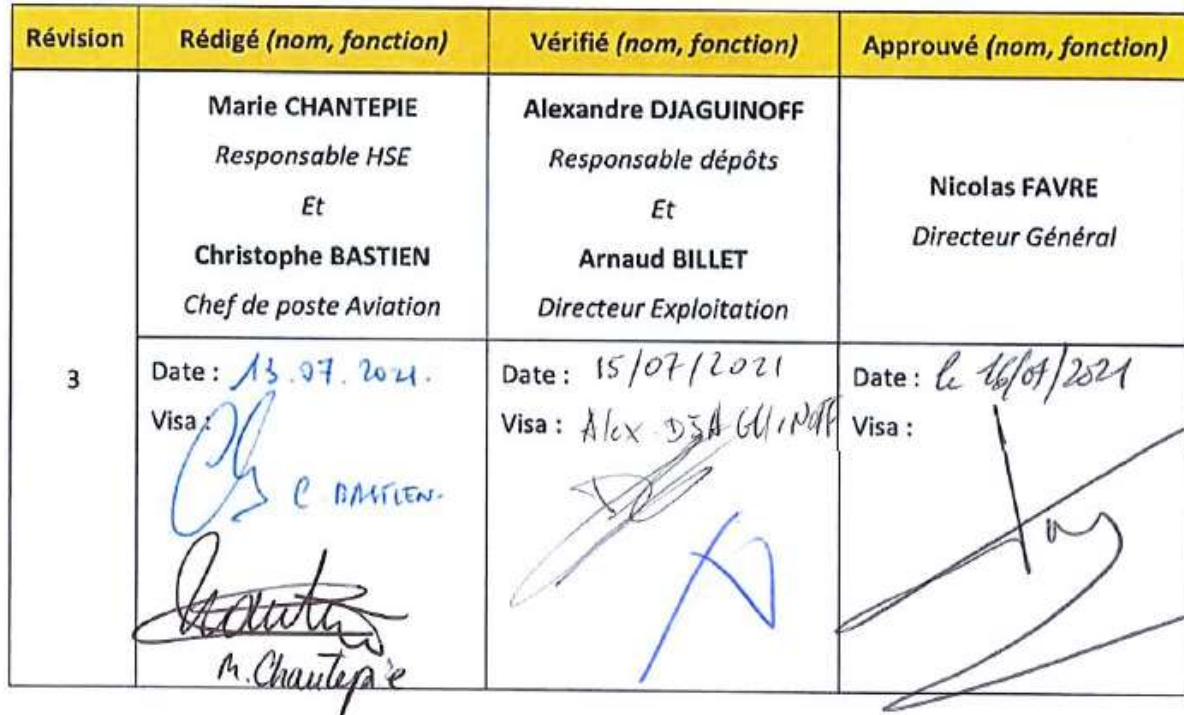 Révision
Rédigé (nom, fonction)
Vérifié (nom, fonction)
Approuvé (nom, fonction)
3
Marie CHANTEPIE
Responsable HSE
Et
Christophe BASTIEN
Chef de poste Aviation
Alexandre DJAGUINOFF
Responsable dépôts
Et
Arnaud BILLET
Directeur Exploitation
Nicolas FAVRE
Directeur Général
Date : 13.07.2021.
Visa :
C. BASTIEN.
M. Chantepie
Date : 15/07/2021
Visa : Alex DJAGUINOFF
Date : le 16/07/2021
Visa :